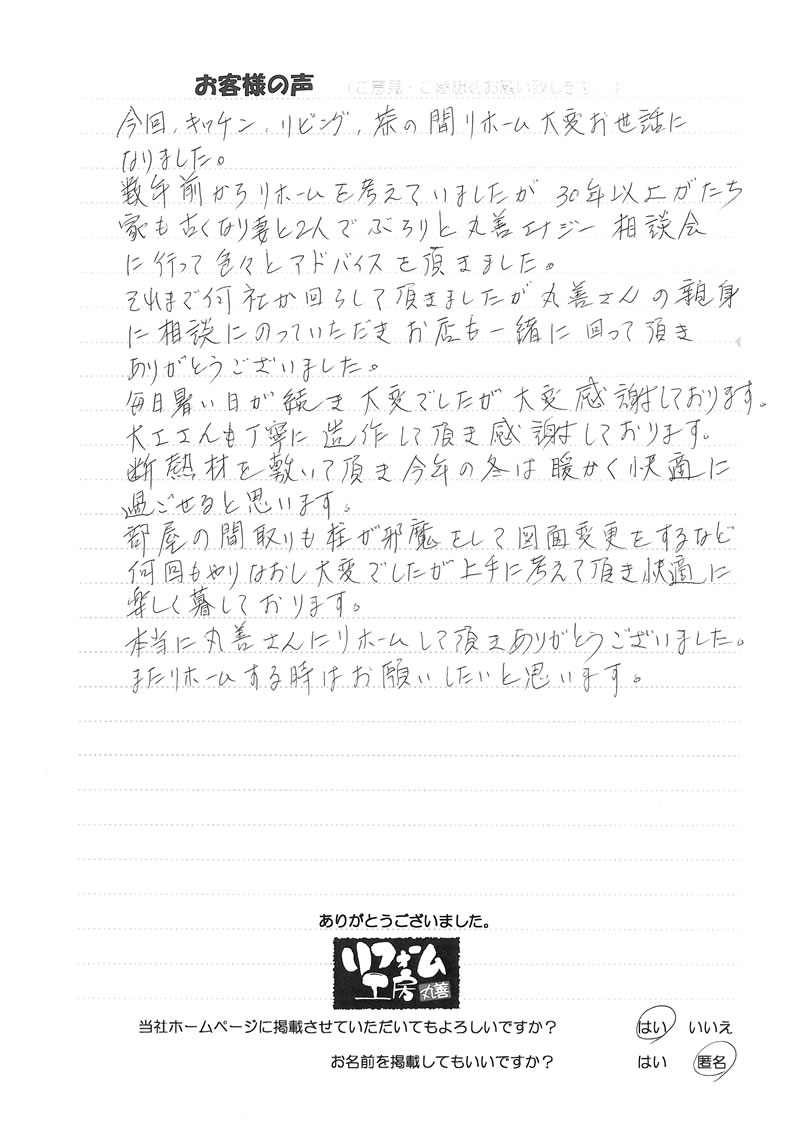 お客様の声 （ご意見・ご感想をお願い致します。）
今回、キッチン、リビング、茶の間リホーム大変お世話に
なりました。
数年前からリホームを考えていましたが 30年以上がたち
家も古くなり妻と2人でぶらりと丸善エナジー相談会
に行って色々とアドバイスを頂きました。
それまで何社か回らして頂きましたが丸善さんの親身
に相談にのっていただきお店も一緒に回って頂き
ありがとうございました。
毎日暑い日が続き大変でしたが大変感謝しております。
大工さんも丁寧に造作して頂き感謝しております。
断熱材を敷いて頂き今年の冬は暖かく快適に
過ごせると思います。
部屋の間取りも柱が邪魔をして図面変更をするなど
何回もやりなおし大変でしたが上手に考えて頂き快適に
楽しく暮しております。
本当に丸善さんにリホームして頂きありがとうございました。
またリホームする時はお願いしたいと思います。
ありがとうございました。
リフォーム
工房 丸善
当社ホームページに掲載させていただいてもよろしいですか？ はい いいえ
お名前を掲載してもいいですか？ はい 匿名